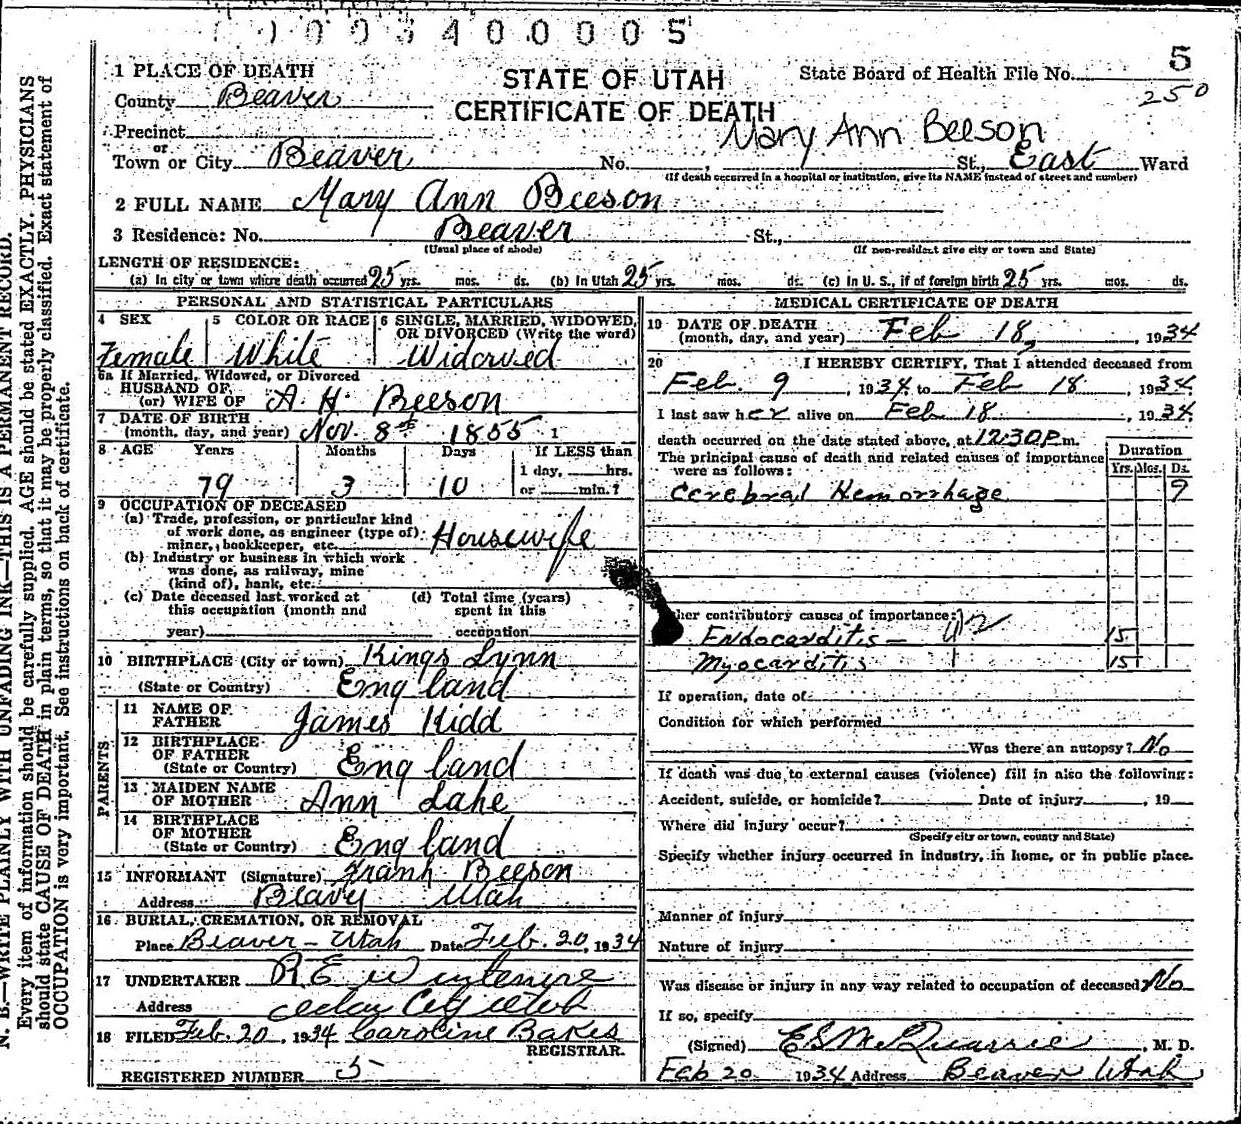 0 0 3 4 0 0 0 0 5
5
1 PLACE OF DEATH
STATE OF UTAH
State Board of Health File No.
County Beaver
CERTIFICATE OF DEATH
250
Precinct
Mary Ann Beeson
or
Town or City Beaver No. , St., East Ward
(If death occurred in a hospital or institution, give its NAME instead of street and number)
2 FULL NAME Mary Ann Beeson
3 Residence: No. Beaver St.,
(Usual place of abode) (If non-resident give city or town and State)
LENGTH OF RESIDENCE:
(a) In city or town where death occurred 25 yrs. mos. ds. (b) In Utah 25 yrs. mos. ds. (c) In U. S., if of foreign birth 25 yrs. mos. ds.
PERSONAL AND STATISTICAL PARTICULARS
4 SEX 5 COLOR OR RACE 6 SINGLE, MARRIED, WIDOWED, OR DIVORCED (Write the word)
Female White Widowed
6a If Married, Widowed, or Divorced
HUSBAND OF
(or) WIFE OF A. H. Beeson
7 DATE OF BIRTH
(month, day, and year) Nov. 8th 1855 1
8 AGE Years Months Days If LESS than
1 day, hrs.
79 3 10 or min.?
9 OCCUPATION OF DECEASED
(a) Trade, profession, or particular kind
of work done, as engineer (type of):
miner, bookkeeper, etc. Housewife
(b) Industry or business in which work
was done, as railway, mine
(kind of), bank, etc.
(c) Date deceased last worked at (d) Total time (years)
this occupation (month and spent in this
year) occupation
10 BIRTHPLACE (City or town) Kings Lynn
(State or Country) England
PARENTS
11 NAME OF
FATHER James Kidd
12 BIRTHPLACE
OF FATHER
(State or Country) England
13 MAIDEN NAME
OF MOTHER Ann Lake
14 BIRTHPLACE
OF MOTHER
(State or Country) England
15 INFORMANT (Signature) Frank Beeson
Address Beaver Utah
16 BURIAL, CREMATION, OR REMOVAL
Place Beaver - Utah Date Feb. 20, 1934
17 UNDERTAKER R E
Address Cedar City Utah
18 FILED Feb. 20, 1934 Caroline Bakes
REGISTRAR.
REGISTERED NUMBER 5
MEDICAL CERTIFICATE OF DEATH
19 DATE OF DEATH
(month, day, and year) Feb 18, , 1934
20 I HEREBY CERTIFY, That I attended deceased from
Feb. 9 , 1934, to Feb 18 , 1934.
I last saw her alive on Feb 18 , 1934.
death occurred on the date stated above, at 12:30 P. m.
The principal cause of death and related causes of importance
were as follows:
Duration
Yrs. Mos. Ds.
Cerebral Hemorrhage 9
her contributory causes of importance:
Endocarditis - 15
Myocarditis 15
If operation, date of
Condition for which performed
Was there an autopsy? No
If death was due to external causes (violence) fill in also the following:
Accident, suicide, or homicide? Date of injury , 19
Where did injury occur?
(Specify city or town, county and State)
Specify whether injury occurred in industry, in home, or in public place.
Manner of injury
Nature of injury
Was disease or injury in any way related to occupation of deceased? No
If so, specify
(Signed) E S McQuarrie , M. D.
Feb 20 1934 Address Beaver Utah
N. B.—WRITE PLAINLY WITH UNFADING INK—THIS IS A PERMANENT RECORD.
Every item of information should be carefully supplied. AGE should be stated EXACTLY. PHYSICIANS
should state CAUSE OF DEATH in plain terms, so that it may be properly classified. Exact statement of
OCCUPATION is very important. See instructions on back of certificate.